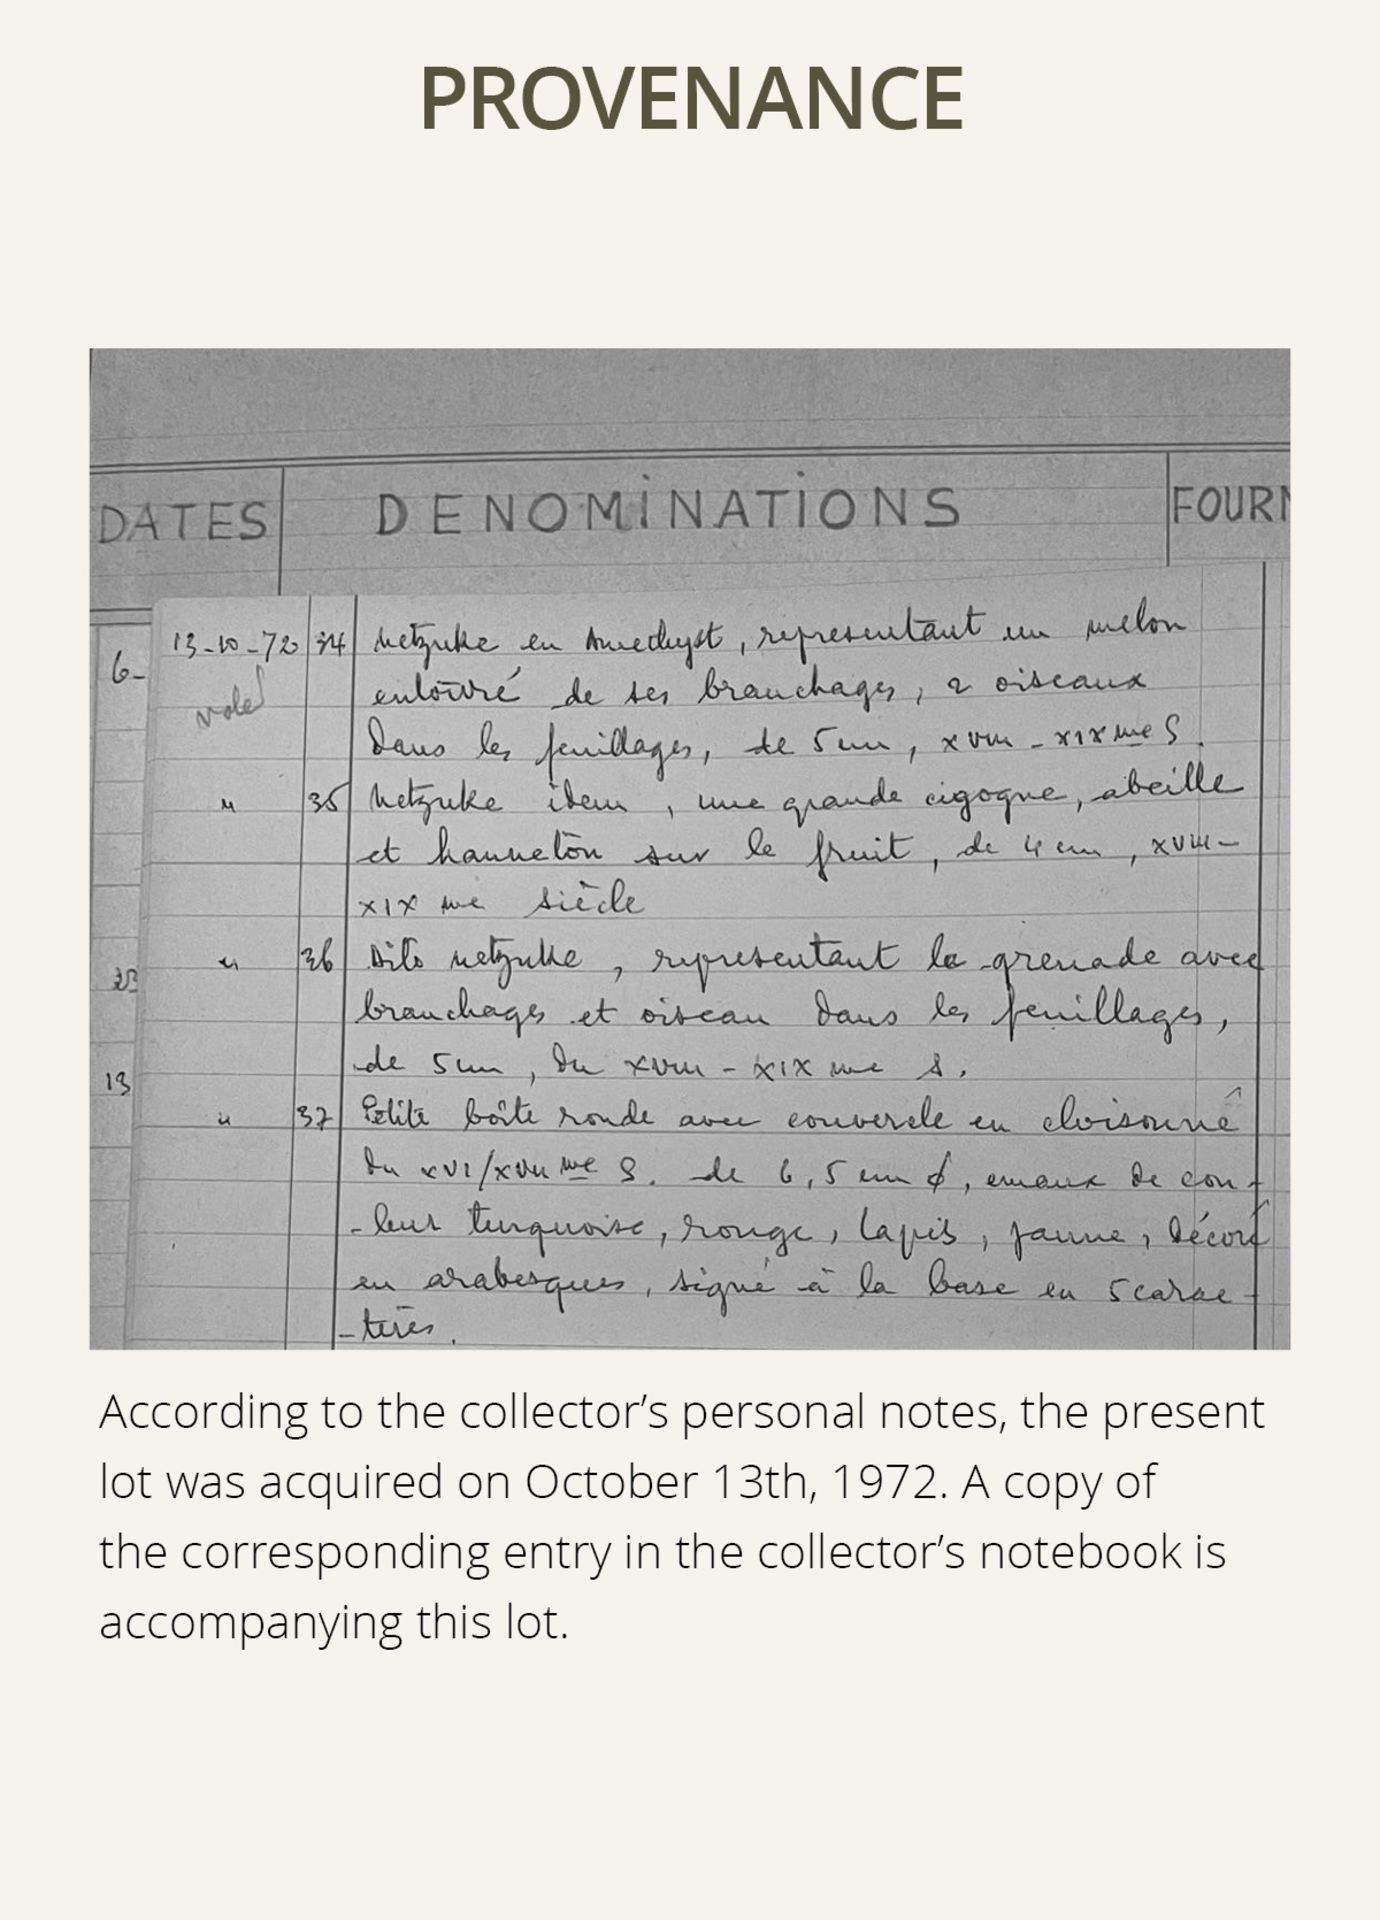 PROVENANCE
DATES DENOMiNATiONS FOURN
6-
13-10-72 34 Netzuke en Amedhyst, representant un melon
volé
entouré de ses branchages, 2 oiseaux
dans les feuillages, de 5 cm, XVIII - XIX me S.
" 35 Netzuke idem, une grande cigogne, abeille
et hanneton sur le fruit, de 4 cm, XVIII-
XIX me siècle
" 36 Dito netzuke, representant la grenade avec
branchages et oiseau dans les feuillages,
de 5 cm, du XVIII - XIX me s.
13
" 37 Petite boîte ronde avec couvercle en cloisonné
du XVI/XVII me S. de 6,5 cm ϕ, emaux de cou-
-leur turquoise, rouge, lapis, jaune, décoré
en arabesques, signé à la base en 5 carac-
-tères.
According to the collector’s personal notes, the present
lot was acquired on October 13th, 1972. A copy of
the corresponding entry in the collector’s notebook is
accompanying this lot.